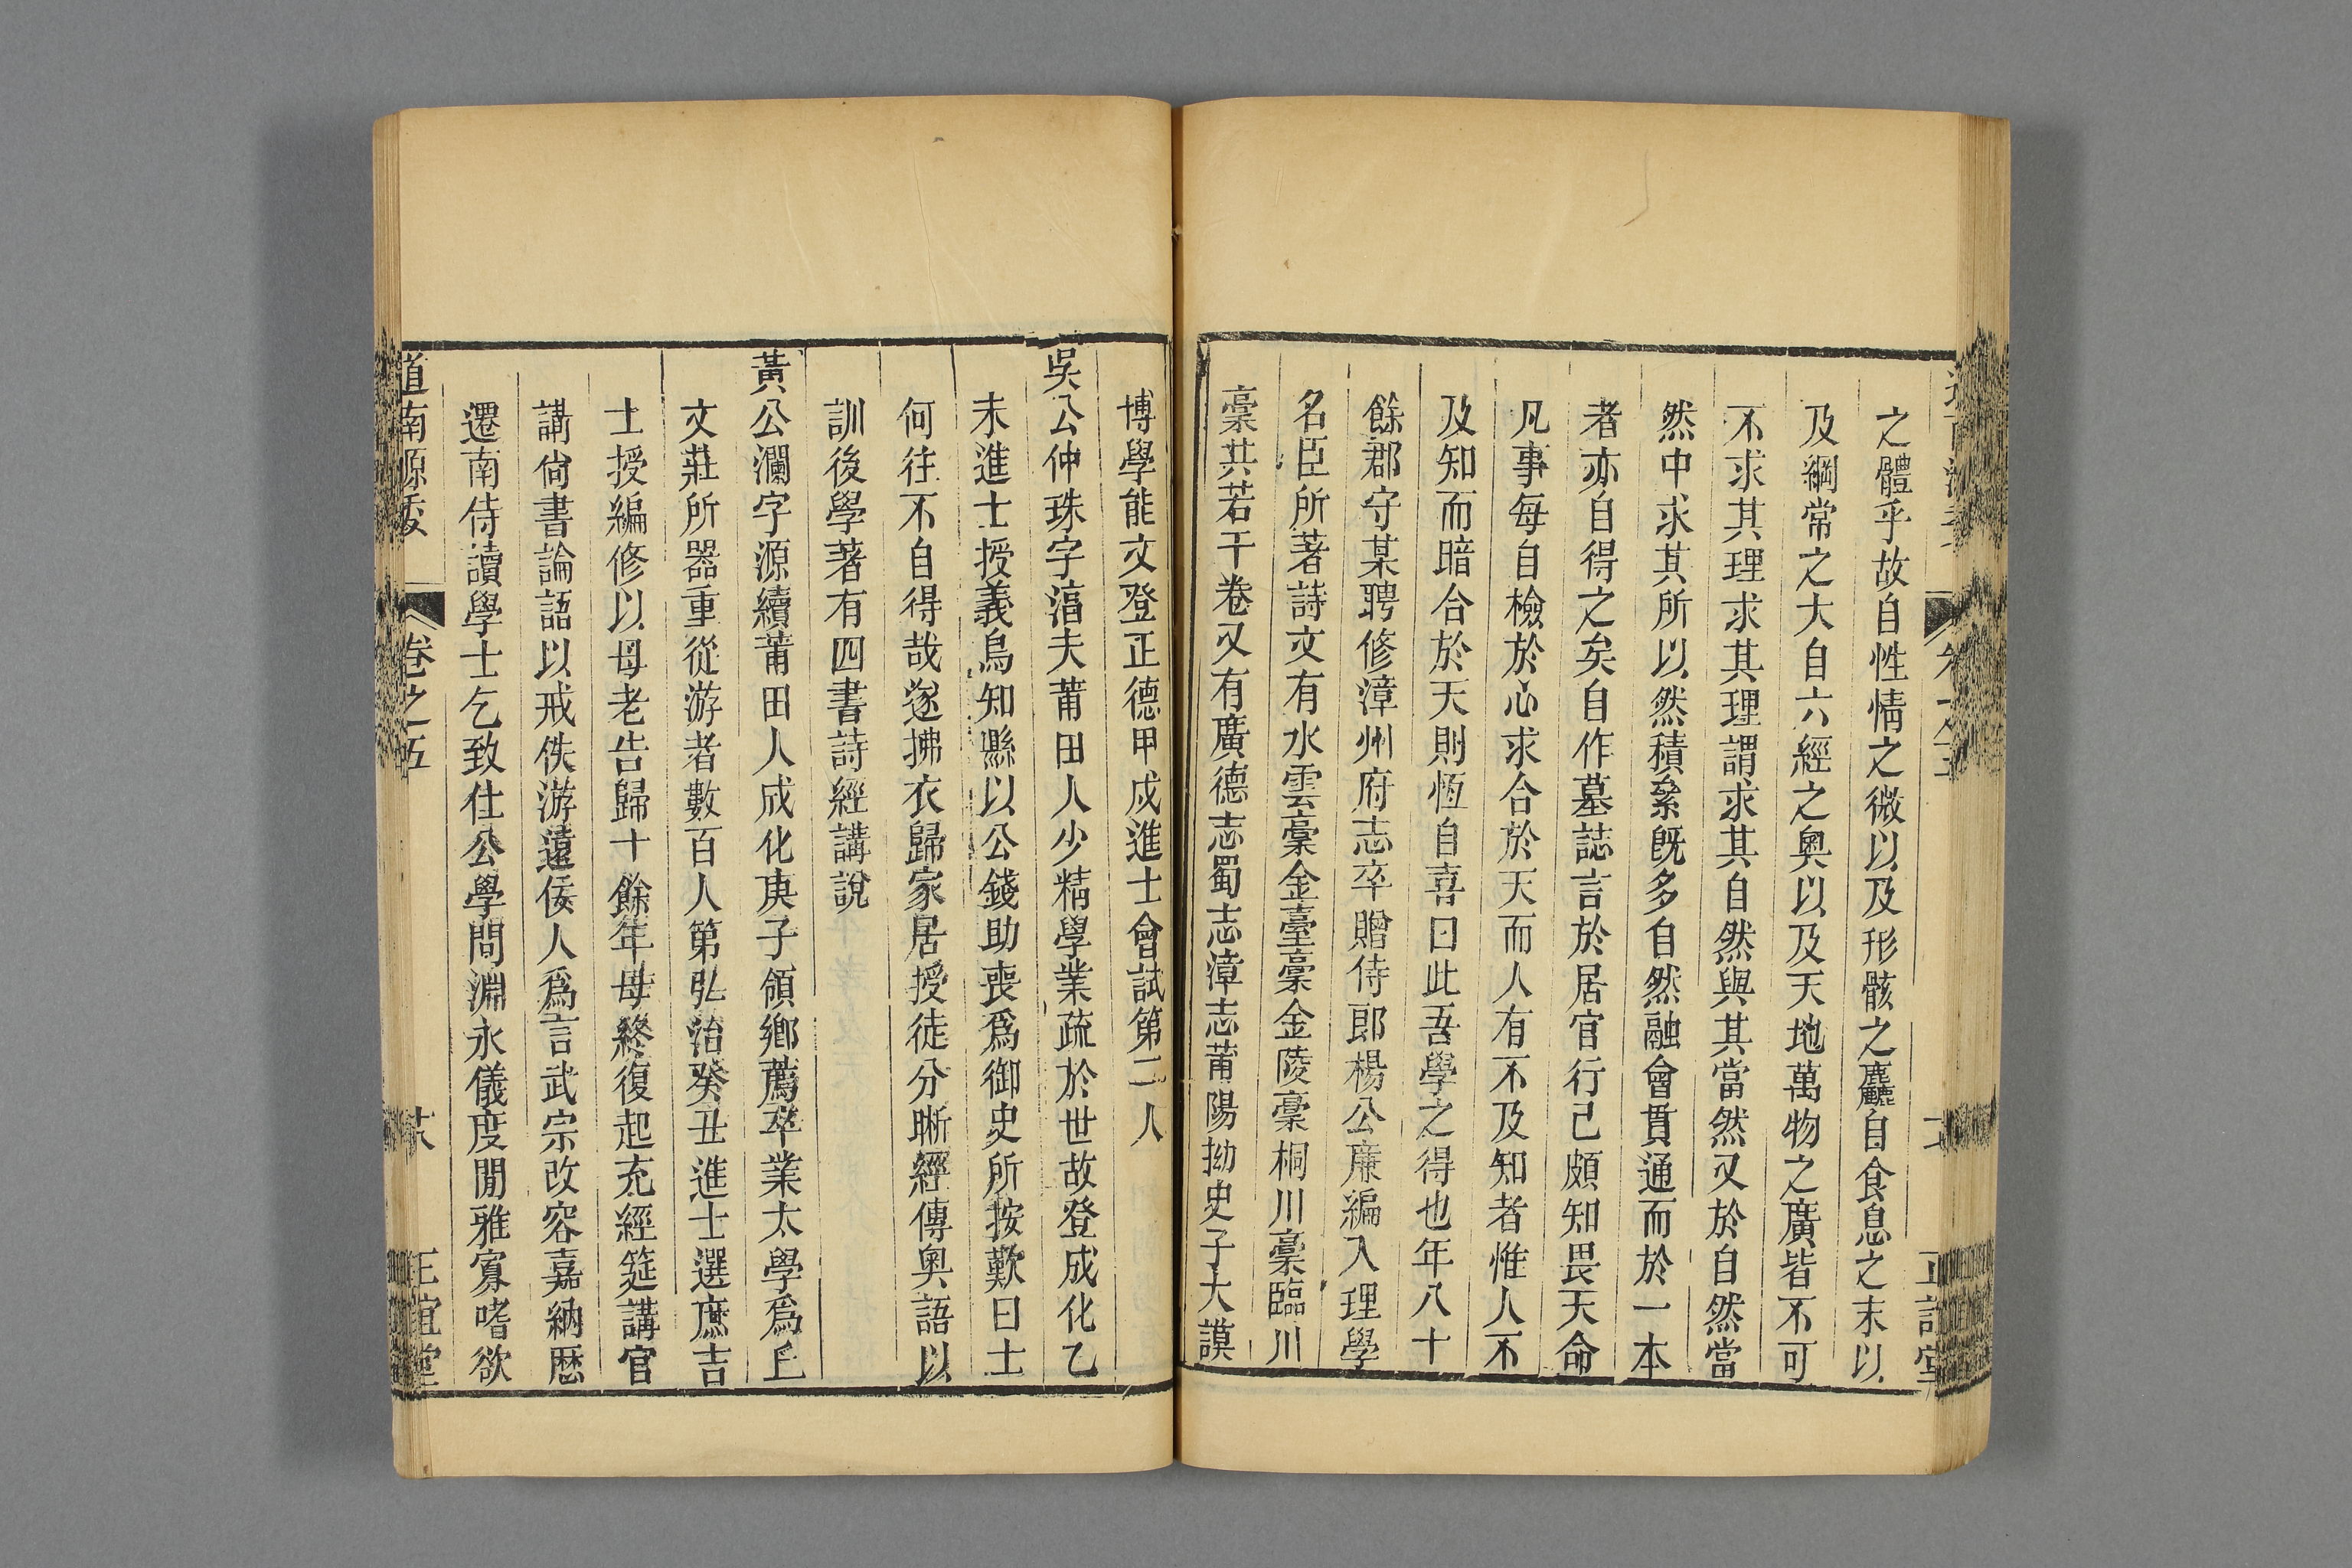 之體乎故自性情之微以及形骸之麤自食息之末以
及綱常之大自六經之奧以及天地萬物之廣皆不可
不求其理求其理謂求其自然與其當然又於自然當
然中求其所以然積絫既多自然融會貫通而於一本
者亦自得之矣自作墓誌言於居官行己頗知畏天命
凡事每自檢於心求合於天而人有不及知者惟人不
及知而暗合於天則恆自喜曰此吾學之得也年八十
餘郡守某聘修漳州府志卒贈侍郎楊公廉編入理學
名臣所著詩文有水雲稾金臺稾金陵稾桐川稾臨川
稾共若干卷又有廣德志蜀志漳志莆陽拗史子大謨
博學能文登正德甲戌進士會試第二人
吳公仲珠字㴠夫莆田人少精學業疏於世故登成化乙
未進士授義烏知縣以公錢助喪爲御史所按歎曰士
何往不自得哉遂拂衣歸家居授徒分晰經傳奧語以
訓後學著有四書詩經講說
黃公瀾字源續莆田人成化庚子領鄉薦卒業太學爲丘
文莊所器重從游者數百人第弘治癸丑進士選庶吉
士授編修以母老告歸十餘年母終復起充經筵講官
講尙書論語以戒佚游遠佞人爲言武宗改容嘉納歷
遷南侍讀學士乞致仕公學問淵永儀度閒雅寡嗜欲
道南源委 卷之五 共 正誼堂